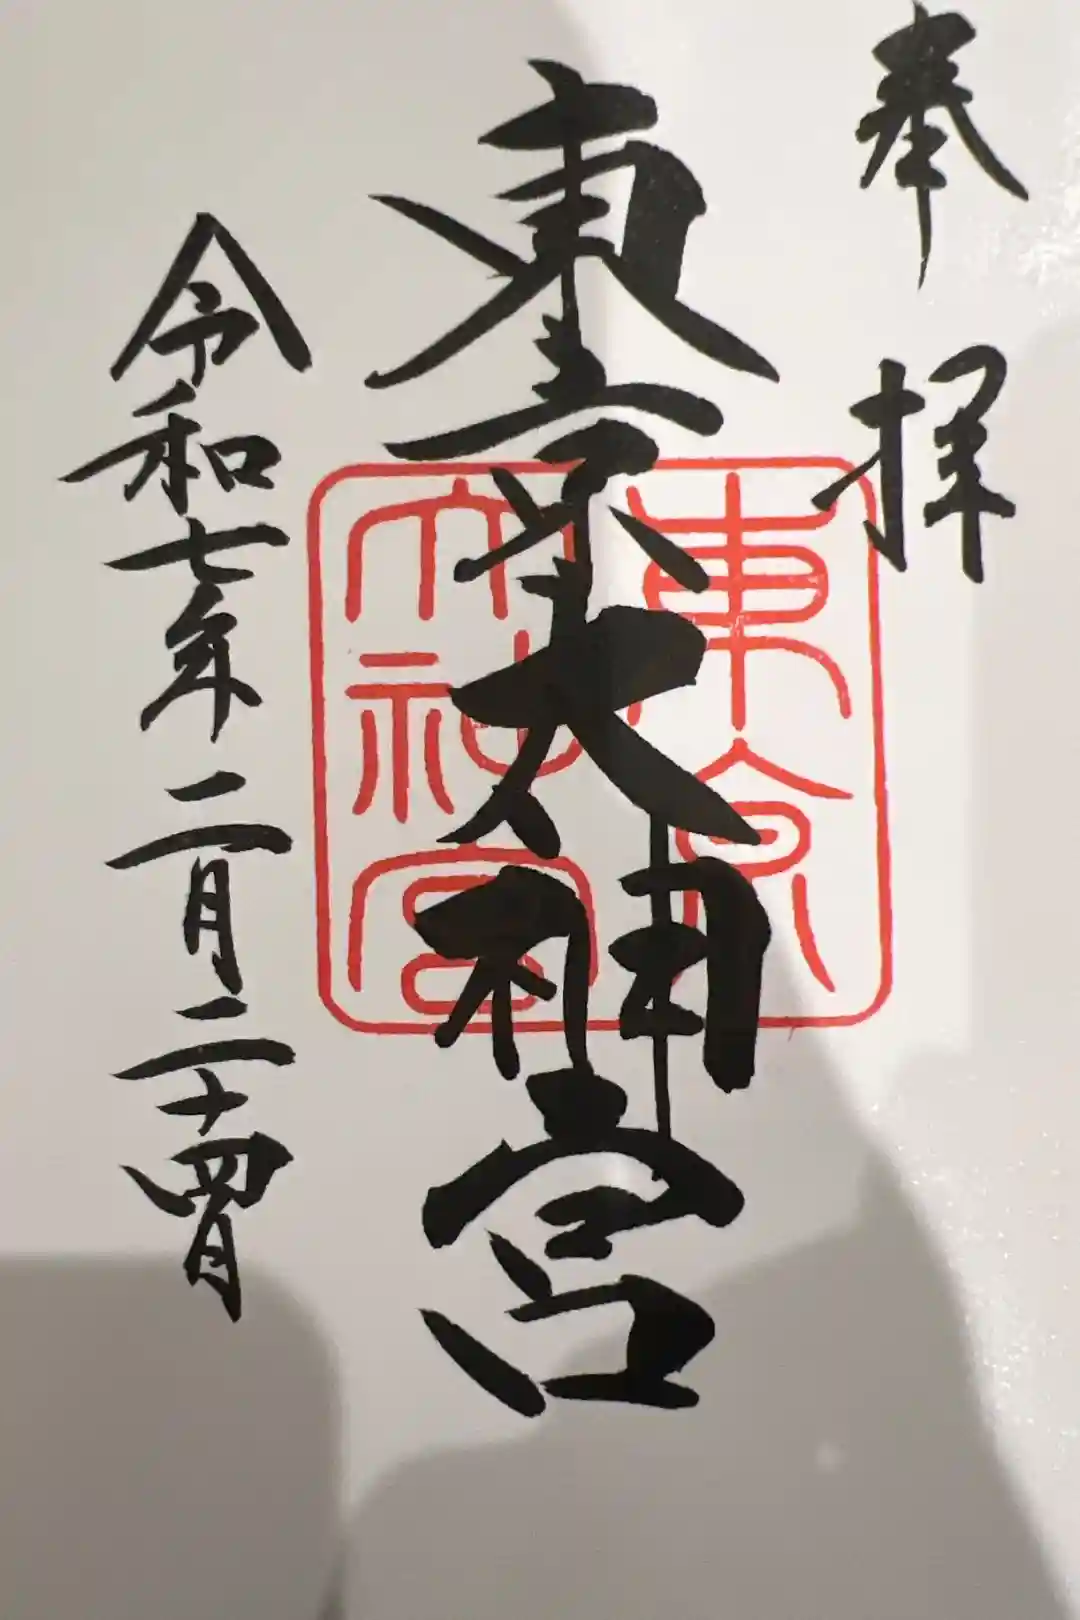 奉拝
東京大神宮
東京
大神宮
令和七年二月二十四日